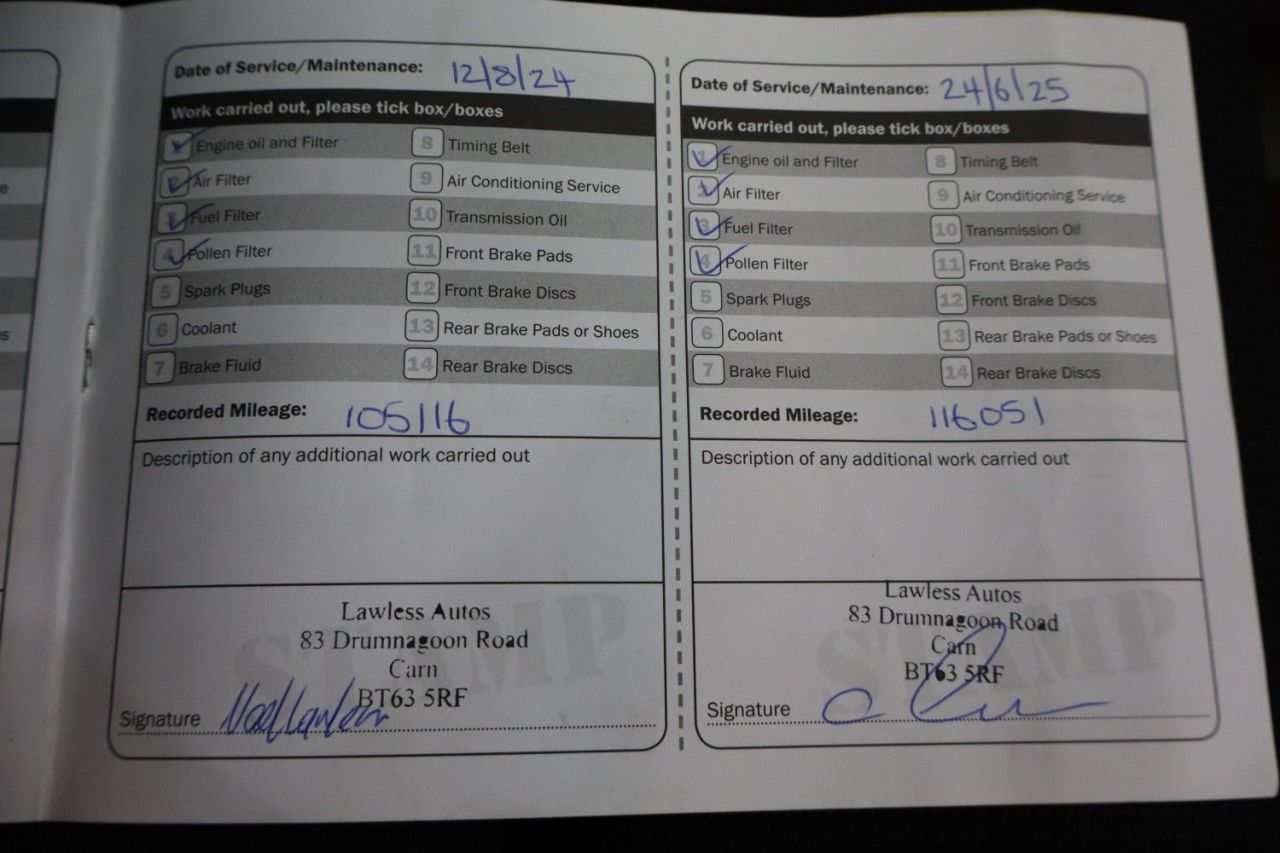 Date of Service/Maintenance: 12/8/24
Work carried out, please tick box/boxes
Engine oil and Filter
8 Timing Belt
Air Filter
9 Air Conditioning Service
Fuel Filter
10 Transmission Oil
4 Pollen Filter
11 Front Brake Pads
5 Spark Plugs
12 Front Brake Discs
6 Coolant
13 Rear Brake Pads or Shoes
7 Brake Fluid
14 Rear Brake Discs
Recorded Mileage: 105116
Description of any additional work carried out
STAMP
Lawless Autos
83 Drumnagoon Road
Carn
BT63 5RF
Signature
Date of Service/Maintenance: 24/6/25
Work carried out, please tick box/boxes
1 Engine oil and Filter
8 Timing Belt
Air Filter
9 Air Conditioning Service
3 Fuel Filter
10 Transmission Oil
4 Pollen Filter
11 Front Brake Pads
5 Spark Plugs
12 Front Brake Discs
6 Coolant
13 Rear Brake Pads or Shoes
7 Brake Fluid
14 Rear Brake Discs
Recorded Mileage: 116051
Description of any additional work carried out
STAMP
Lawless Autos
83 Drumnagoon Road
Carn
BT63 5RF
Signature